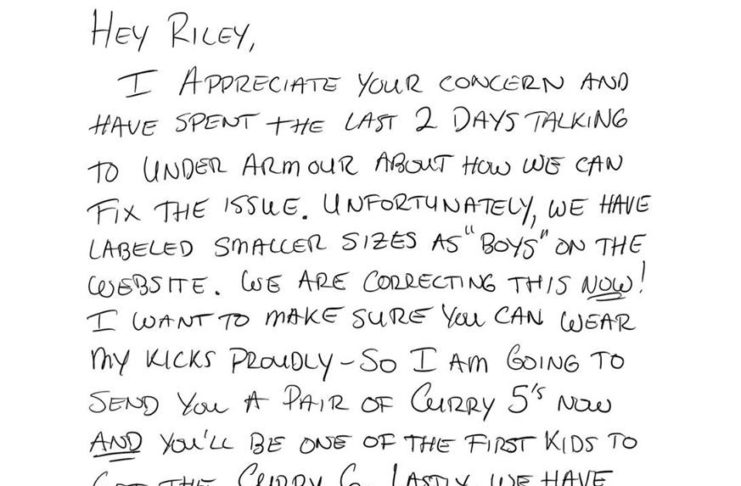 HEY RILEY,
I APPRECIATE YOUR CONCERN AND
HAVE SPENT THE LAST 2 DAYS TALKING
TO UNDER ARMOUR ABOUT HOW WE CAN
FIX THE ISSUE. UNFORTUNATELY, WE HAVE
LABELED SMALLER SIZES AS "BOYS" ON THE
WEBSITE. WE ARE CORRECTING THIS NOW!
I WANT TO MAKE SURE YOU CAN WEAR
MY KICKS PROUDLY - SO I AM GOING TO
SEND YOU A PAIR OF CURRY 5'S NOW
AND YOU'LL BE ONE OF THE FIRST KIDS TO
GET THE CURRY 6. LASTLY, WE HAVE